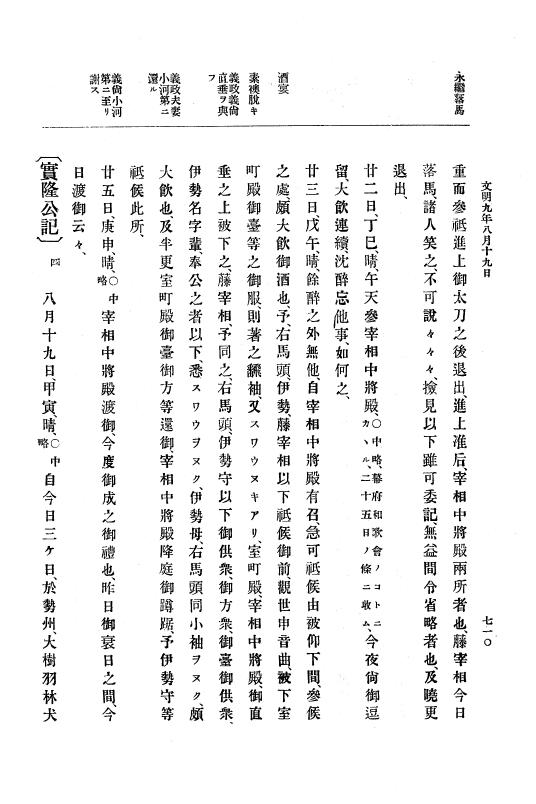 文明九年八月十九日
七一〇
永繼落馬
酒宴
素襖脫キ
義政義尙
直垂ヲ與
フ
義政夫妻
小河第ニ
還ル
義尙小河
第ニ至リ
謝ス
重而參祗進上御太刀之後退出、進上准后、宰相中將殿兩所者也、藤宰相今日
落馬、諸人笑之、不可說々々々、撿見以下雖可委記、無益間令省略者也、及曉更
退出、
廿二日、丁巳、晴、午天參宰相中將殿、〇中略、幕府和歌會ノコトニカヽル、二十五日ノ條ニ收ム、今夜尙御逗
留、大飮連續、沈醉忘他事、如何之、
廿三日、戊午、晴、餘醉之外無他、自宰相中將殿有召、急可祗候由被仰下間、參候
之處、頗大飮御酒也、予、右馬頭、伊勢、藤宰相以下祗候御前、觀世申音曲、被下室
町殿御臺等之御服、則著之飜袖、又スワウヌキアリ、室町殿、宰相中將殿、御直
垂之上被下之、藤宰相、予同之、右馬頭、伊勢守以下御供衆、御方衆、御臺御供衆、
伊勢名字輩、奉公之者以下、悉スワウヲヌク、伊勢母、右馬頭同小袖ヲヌク、頗
大飮也、及半更室町殿御臺御方等還御、宰相中將殿降庭御蹲踞、予伊勢守等
祗候此所、
廿五日、庚申、晴、〇中略宰相中將殿渡御、今度御成之御禮也、昨日御衰日之間、今
日渡御云々、
〔實隆公記〕四 八月十九日、甲寅、晴、〇中略自今日三ケ日、於勢州、大樹羽林犬